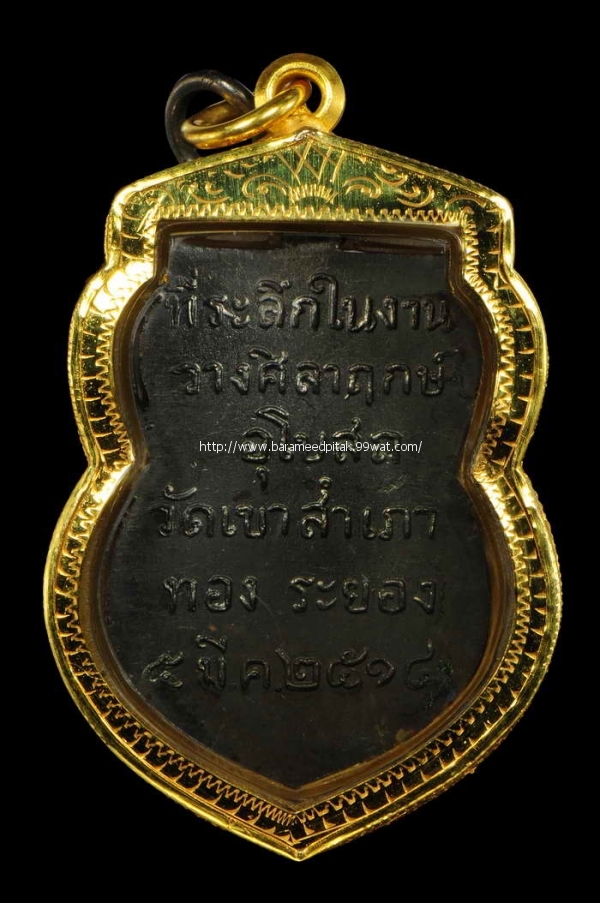 ที่ระลึกในงาน
วางศิลาฤกษ์
อุโบสถ
http://www.barameedpitak.99wat.com/
วัดเขาสำเภา
ทอง ระยอง
๕ มี ค ๒๕๑๘